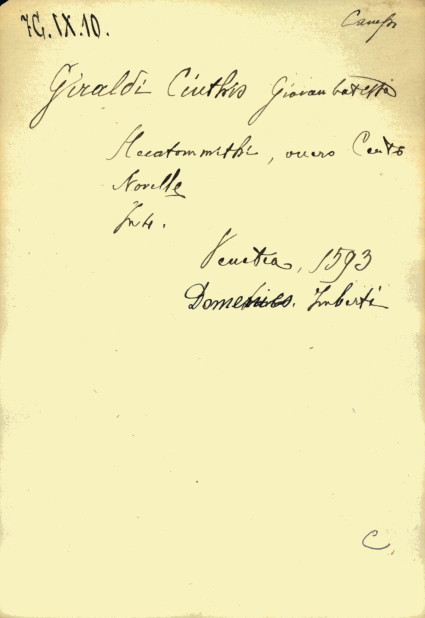 7G.IX.10.
Giraldi Cinthio Giovanbatista
Hecatommithi, overo Cento
Novelle
In 4.
Venetia, 1593
Domenico. Imberti
C.